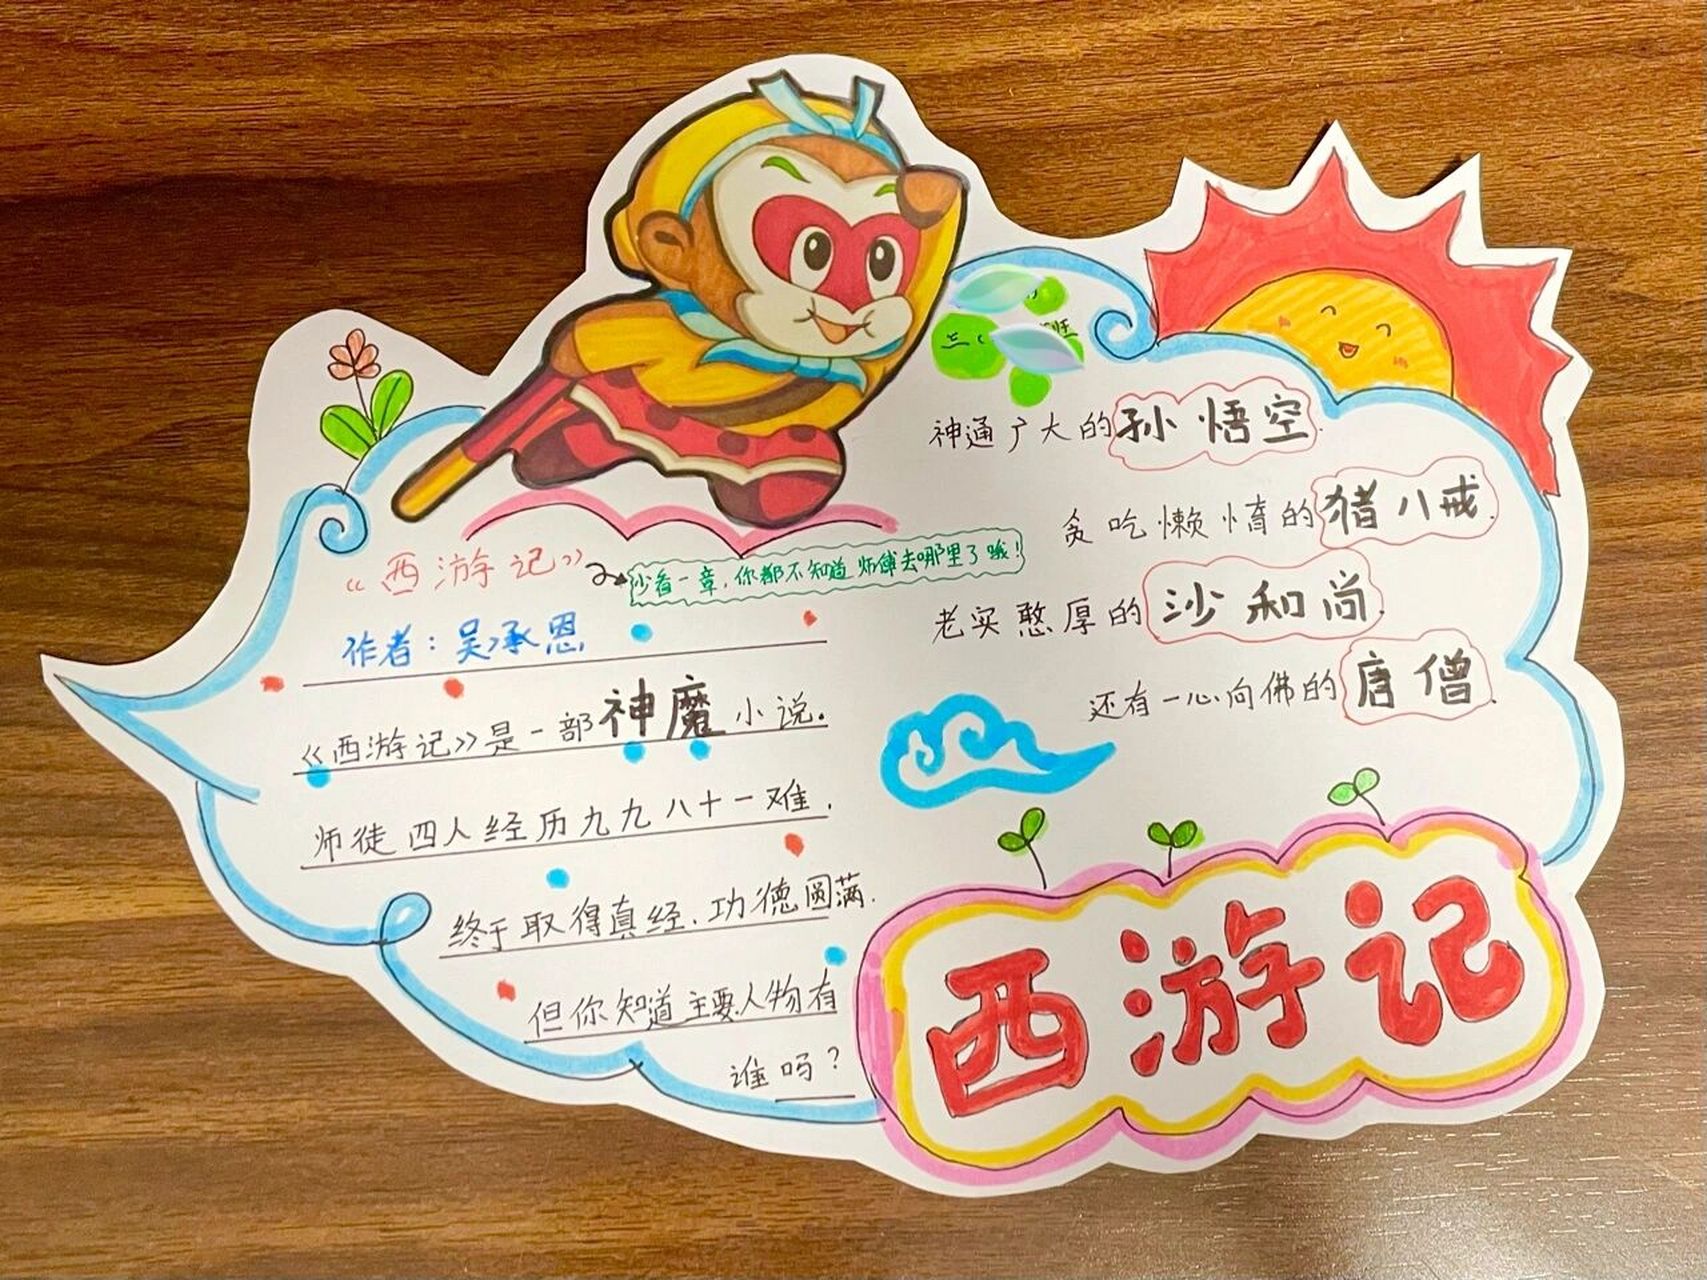 《西游记》
少看一章,你都不知道师傅去哪里了哦!
作者:吴承恩
《西游记》是一部神魔小说.
师徒四人经历九九八十一难.
终于取得真经.功德圆满.
但你知道主要人物有
谁吗?
神通广大的孙悟空.
贪吃懒惰的猪八戒.
老实憨厚的沙和尚.
还有一心向佛的唐僧.
西游记